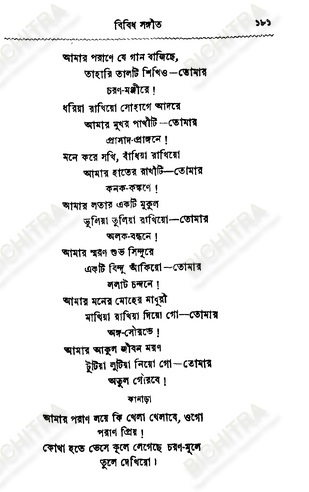 বিবিধ সঙ্গীত ১৮১
আমার পরাণে যে গান বাজিছে,
তাহারি তালটি শিখিও—তোমার
চরণ-মঞ্জীরে !
ধরিয়া রাখিয়ো সোহাগে আদরে
আমার মুখর পাখীটি—তোমার
প্রাসাদ-প্রাঙ্গনে !
মনে করে সখি, বাঁধিয়া রাখিয়ো
আমার হাতের রাখীটি—তোমার
কনক-কঙ্কণে !
আমার লতার একটি মুকুল
ভুলিয়া তুলিয়া রাখিয়ো—তোমার
অলক-বন্ধনে !
আমার স্মরণ শুভ সিন্দূরে
একটি বিন্দু আঁকিয়ো—তোমার
ললাট চন্দনে !
আমার মনের মোহের মাধুরী
মাখিয়া রাখিয়া দিয়ো গো—তোমার
অঙ্গ-সৌরভে !
আমার আকুল জীবন মরণ
টুটিয়া লুটিয়া নিয়ো গো—তোমার
অতুল গৌরবে !
কানাড়া
আমার পরাণ লয়ে কি খেলা খেলাবে, ওগো
পরাণ প্রিয় !
কোথা হতে ভেসে কূলে লেগেছে চরণ-মূলে
তুলে দেখিয়ো ।
BICHITRA